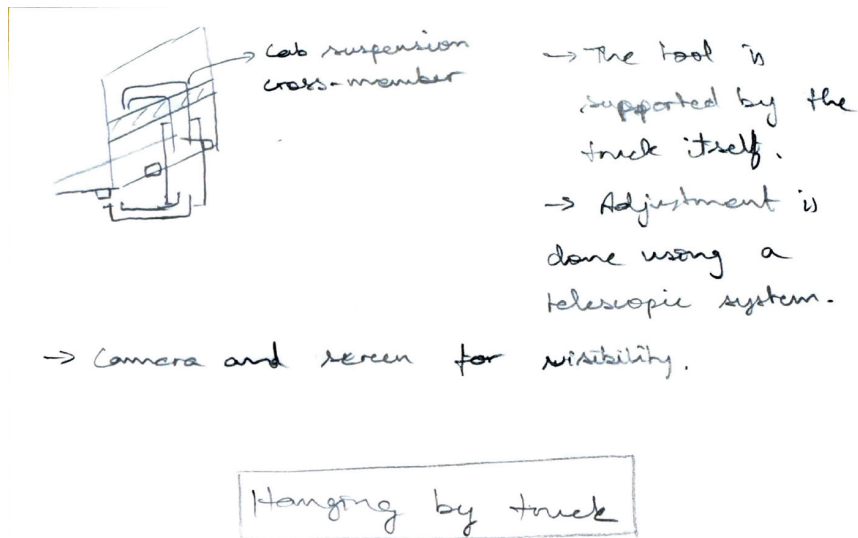 cab suspension
cross-member
→ The tool is
supported by the
truck itself.
→ Adjustment is
done using a
telescopic system.
→ Camera and screen for visibility.
Hanging by truck